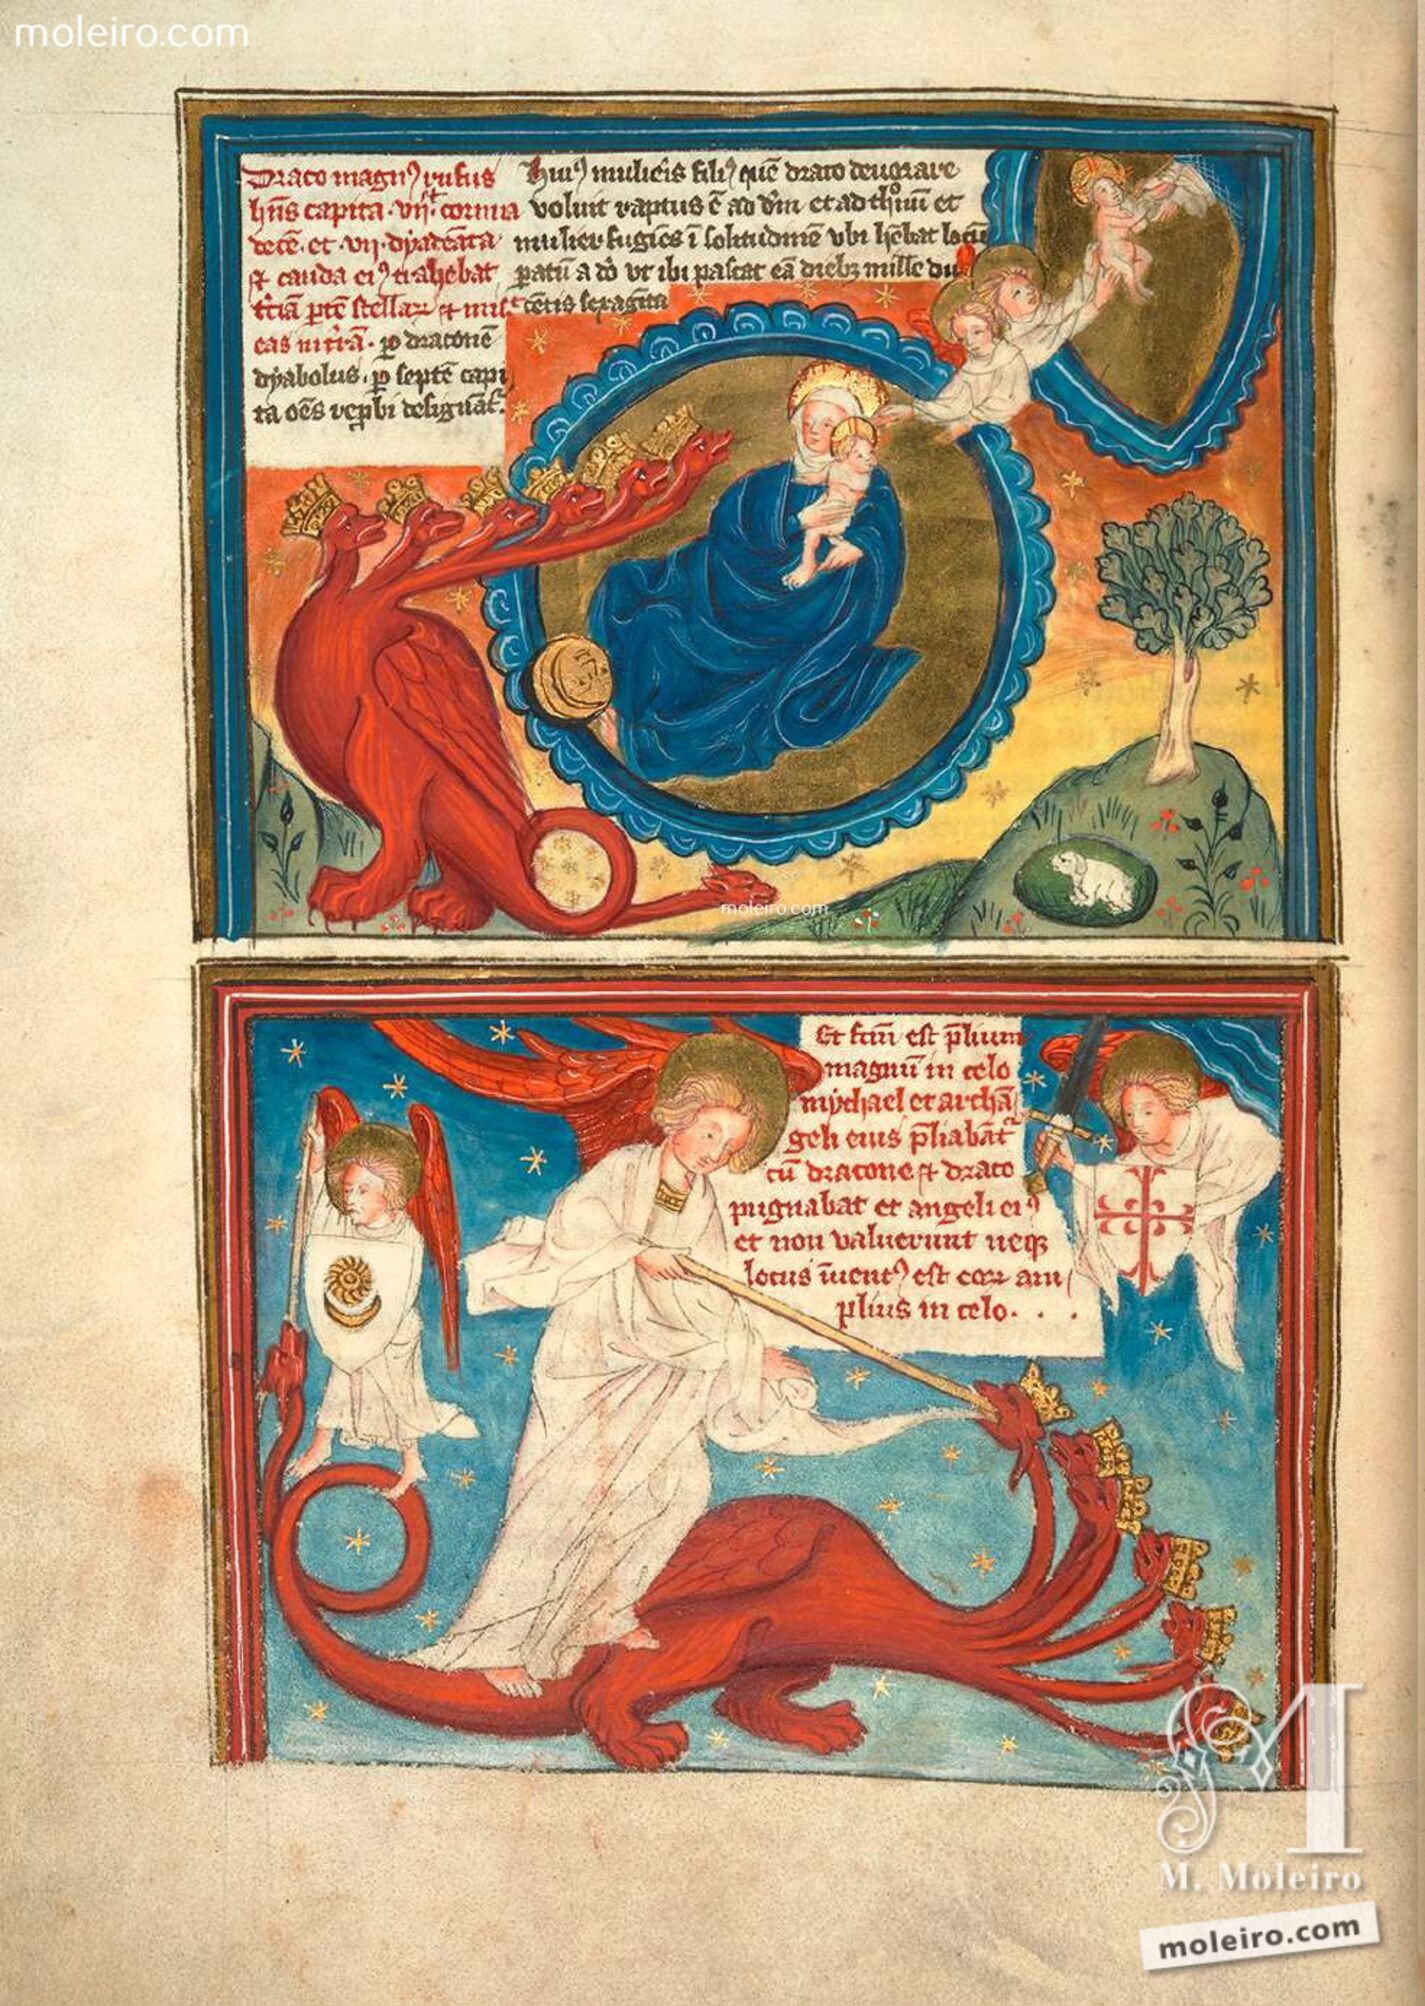 moleiro.com
Draco magnꝰ rufus
hn̄s capita · vii · cornua
decē · et · vii · dyademata
et cauda eiꝰ trahebat
t̄ciā ꝑtē stellaꝝ et mis
eas in t̄rā · ꝑ draconē
dyabolus · ꝑ septē capi
ta oēs
Huiꝰ mulieris filiꝰ quē draco deuorare
voluit raptus ē ad dm̄ et ad thronū et
mulier fugies ī solitudinē vbi hēbat locū
ꝑatū a do vt ibi pascat eā diebꝫ mille du
centis sexaginta
moleiro.com
Et fcm̄ est p̄lium
magnū in celo
mychael et archā
geli eius p̄liabāt
cū dracone et draco
pugnabat et angeli eiꝰ
et non valuerunt neqꝫ
locus īuentꝰ est eoꝝ am
plius in celo · · ·
M. Moleiro
moleiro.com